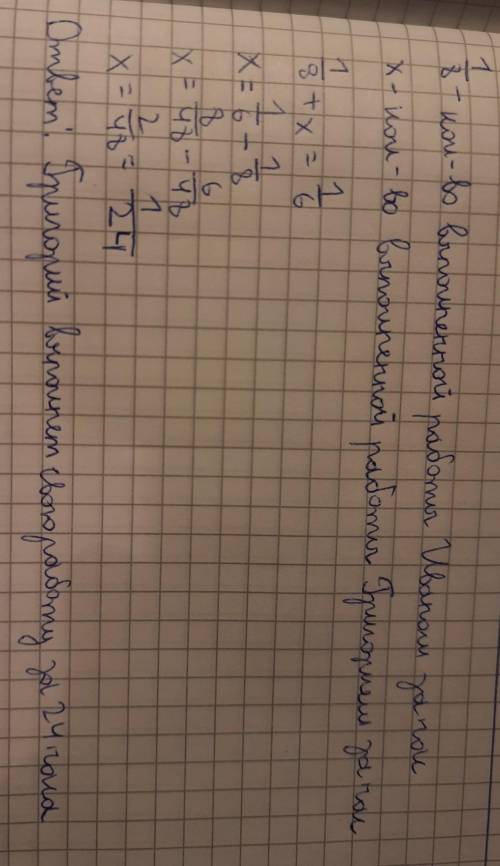 1/8 - кол-во выполненной работы Иваном за час
x - кол-во выполненной работы Григорием за час
1/8 + x = 1/6
x = 1/6 - 1/8
x = 8/48 - 6/48
x = 2/48 = 1/24
Ответ: Григорий выполнет свою работу за 24 часа